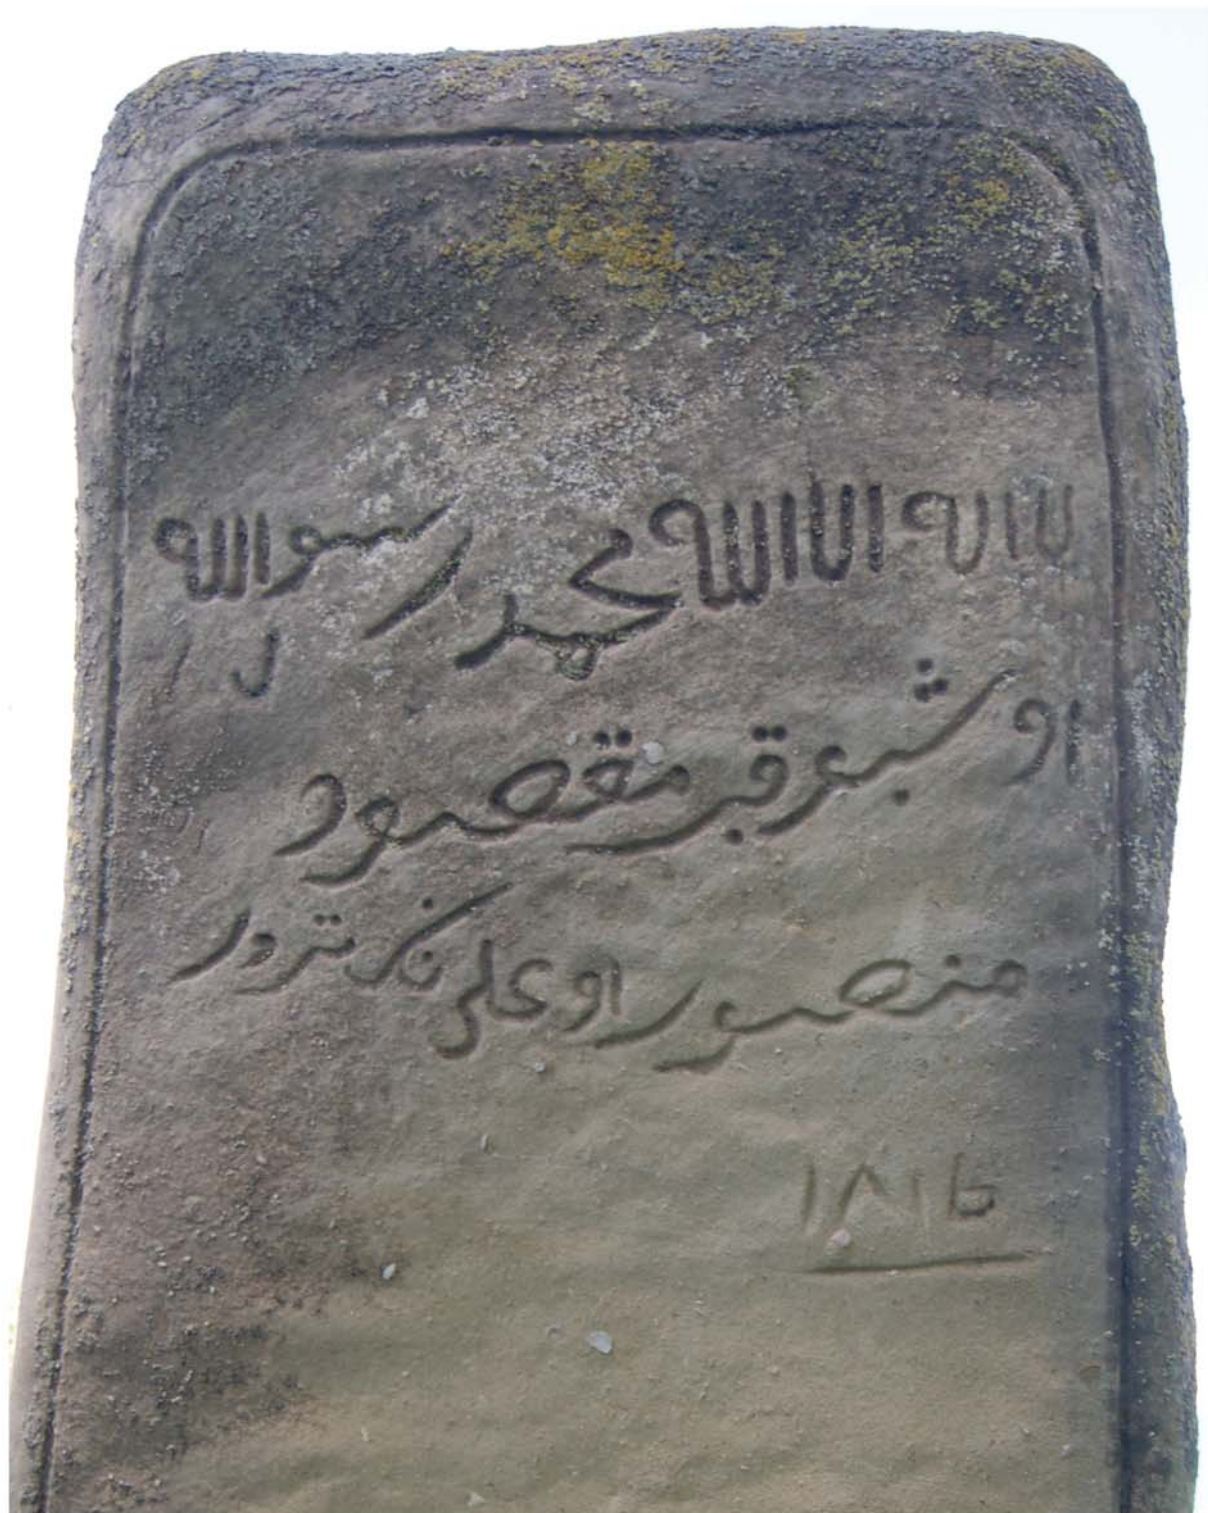 لااله الاالله محمد رسوالله
ل
اوشبو قبر مقصود
منصور اوعلی نک ترور
١٨١٦